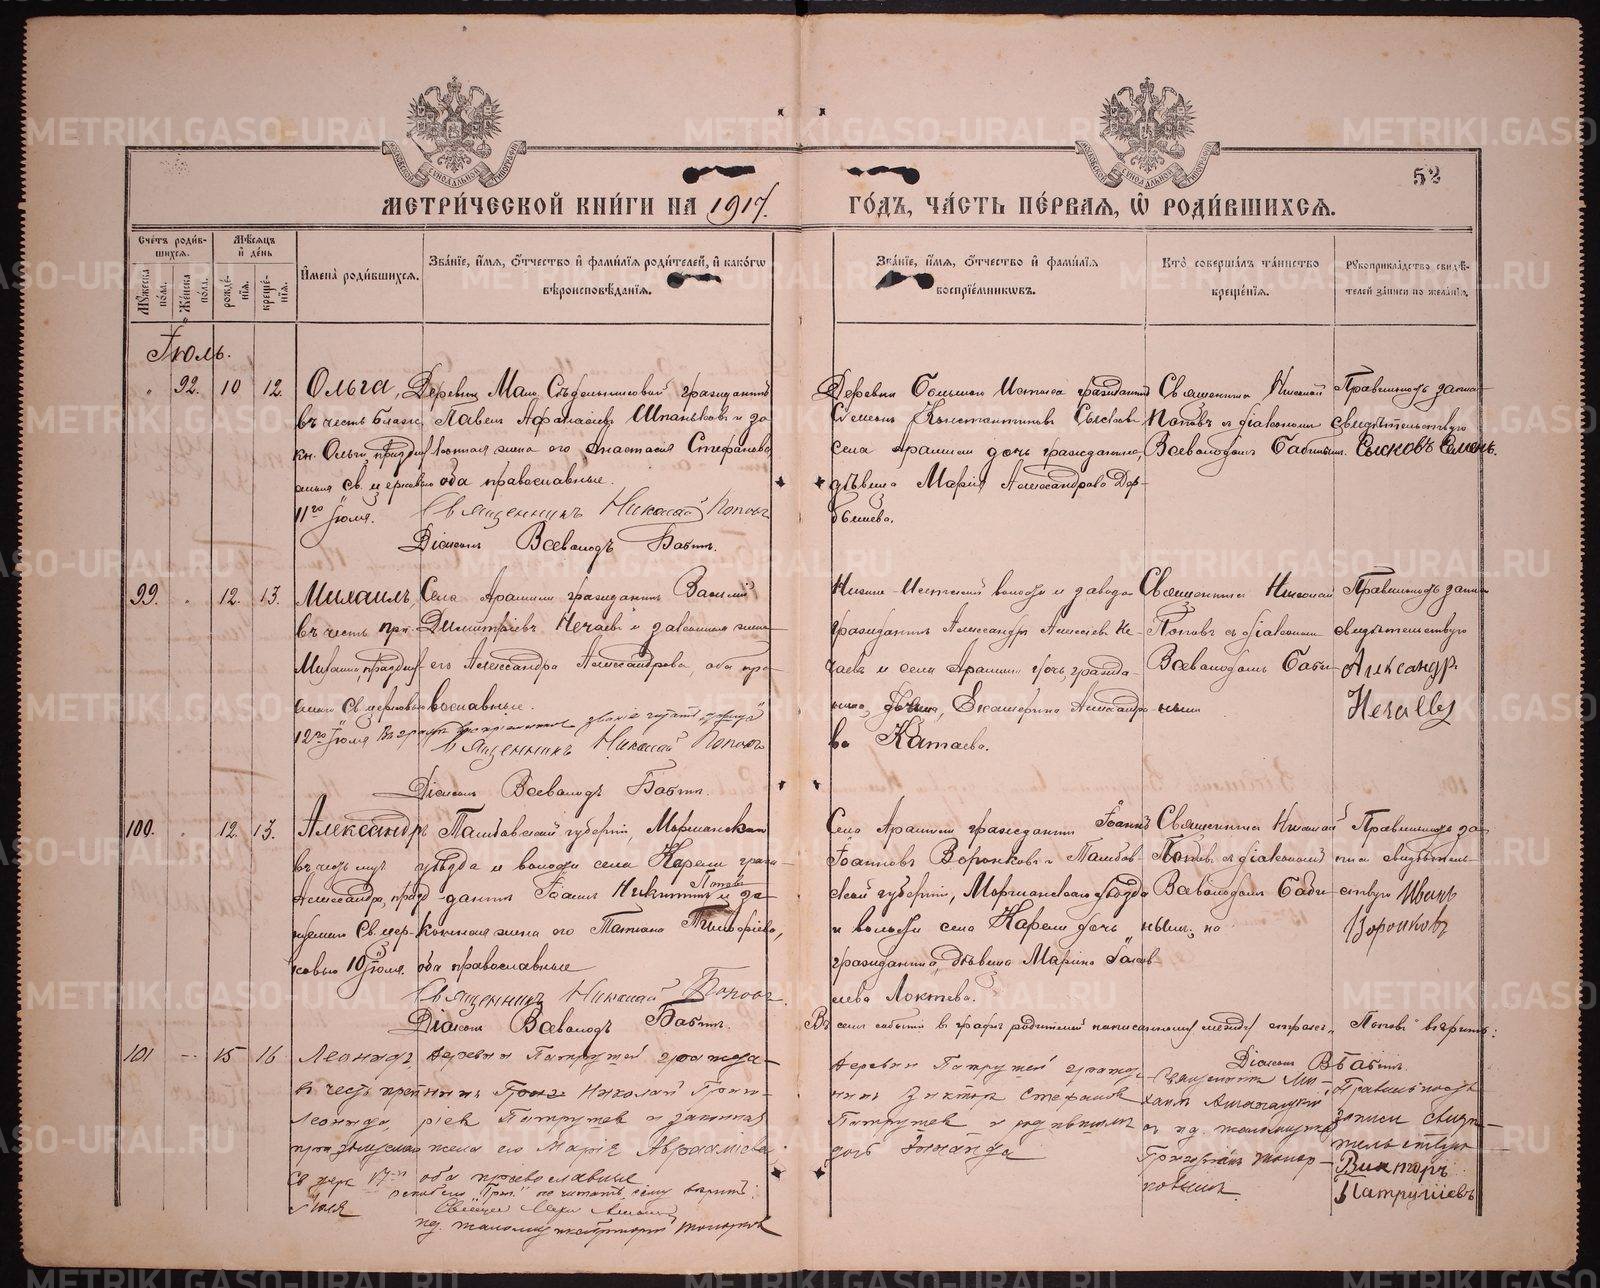 МЕТРИ́ЧЕСКОЙ КНИ́ГИ НА 1917.
ГО́ДЪ, ЧА́СТЬ ПЕ́РВАЯ, Ѡ РОДИ́ВШИХСѦ.
52
Сче́тъ роди́в-
шихсѧ.
Мꙋ́жеска по́ла.
Же́нска по́ла.
Мѣ́сѧцъ и҆ де́нь
рожде́-
нїѧ.
креще́-
нїѧ.
И҆мена̀ роди́вшихсѧ.
Зва́нїе, и҆́мѧ, ѻ҆́тчество и҆ фами́лїѧ роди́телей, и҆ како́гѡ
вѣроисповѣ́данїѧ.
Зва́нїе, и҆́мѧ, ѻ҆́тчество и҆ фами́лїѧ
воспрїе́мникѡвъ.
Кто̀ соверша́лъ та́инство
креще́нїѧ.
Рꙋкоприкла́дство свидѣ́-
телей за́писи по жела́нїю.
Іюль.
" 92. 10 12.
Ольга,
въ честь благов.
кн. Ольги, празднуе-
мыя Св. церковью
11го Іюля.
Деревни Мал. Сѣдельниковой гражданинъ
Павелъ Аѳанасіевъ Шпаньковъ и за-
конная жена его Анастасія Стефанова,
оба православные.
Священникъ Николай Поповъ
Діаконъ Всеволодъ Бабинъ.
Деревни Большой Истока гражданинъ
Симеонъ Константиновъ Сысковъ и
села Арамили дочь гражданина,
дѣвица Марія Александрова Дер-
бышева.
Священникъ Николай
Поповъ съ діакономъ
Всеволодомъ Бабинымъ.
Правильность записи
свидѣтельствую
Сысковъ Семенъ.
99. " 12. 13.
Михаилъ,
въ честь пр.
Михаила, праздну-
емаго Св. церковью
12го Іюля
Села Арамили гражданинъ Василій
Димитріевъ Нечаевъ и законная жена
его Александра Александрова, оба пра-
вославные.
Священникъ Николай Поповъ
Діаконъ Всеволодъ Бабинъ.
Нижне-Исетской волости и завода
гражданинъ Александръ Алексіевъ Не-
чаевъ и села Арамили дочь гражда-
нина, Екатерина Александро-
ва Катаева.
Священникъ Николай
Поповъ съ діакономъ
Всеволодомъ Баби-
нымъ
Правильность записи
свидѣтельствую
Александр
Нечаевъ
100. " 12. 13.
Александръ
въ честь муч.
Александра, празд-
нуемаго Св. цер-
ковью 10 Іюля.
Тамбовской губерніи, Моршанскаго
уѣзда и волости села Карели граж-
данинъ Іоаннъ Никитинъ Поповъ и за-
конная жена его Татіана Тимоѳіева,
оба православные
Священникъ Николай Поповъ.
Діаконъ Всеволодъ Бабинъ.
Села Арамили гражданинъ Іоаннъ
Іоанновъ Воронковъ и Тамбов-
ской губерніи, Моршанскаго уѣзда
и волости села Карели дочь
гражданина, дѣвица Марина
Локтева.
Священникъ Николай
Поповъ съ діакономъ
Всеволодомъ Баби-
нымъ.
Правильность за-
писи свидѣтель-
ствую Иванъ
Воронковъ
Въ семъ событіи в графѣ родителей написанному между строкъ, Поповъ вѣрить:
Діаконъ В. Бабинъ.
101 -- 15 16
Леонидъ,
въ честь
Леонида,
празднуемаго
Св церк 17го
Іюля
деревни Патрушей гражда-
нинъ Николай Григо-
ріевъ Патрушев и законная
жена его Марія Авраамова
оба православные
деревни Патрушей гражда-
нинъ Викторъ Стефановъ
Патрушев и
дочь
Священникъ Ми-
хаилъ
Правильность
записи свидѣ-
тельствую
Виктор
Патрушевъ
METRIKI.GASO-URAL.RU